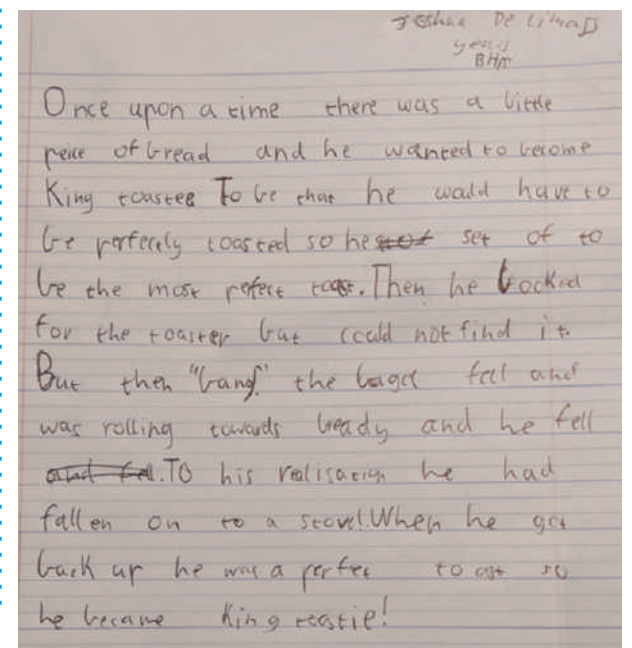 Joshua De Lima
BHM
Once upon a time there was a little
peice of bread and he wanted to become
King toastee To be that he would have to
be perfectly toasted so he set of to
be the most perfect toast. Then he looked
for the toaster but could not find it.
But then "bang" the bagel fell and
was rolling towards bready and he fell
and fell. To his realisation he had
fallen on to a stove! When he got
back up he was a perfect to ast so
he became King toastie!